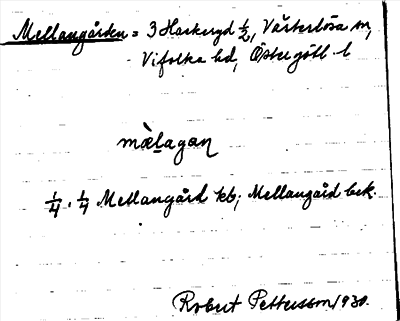 Mellangården = 3 Hackeryd ½, Västerlösa sn,
Vifolka hd, Östergötl. l
mà̀lagan
¼ + ¼ Mellangård kb; Mellangård bek.
Robert Pettersson 1930.